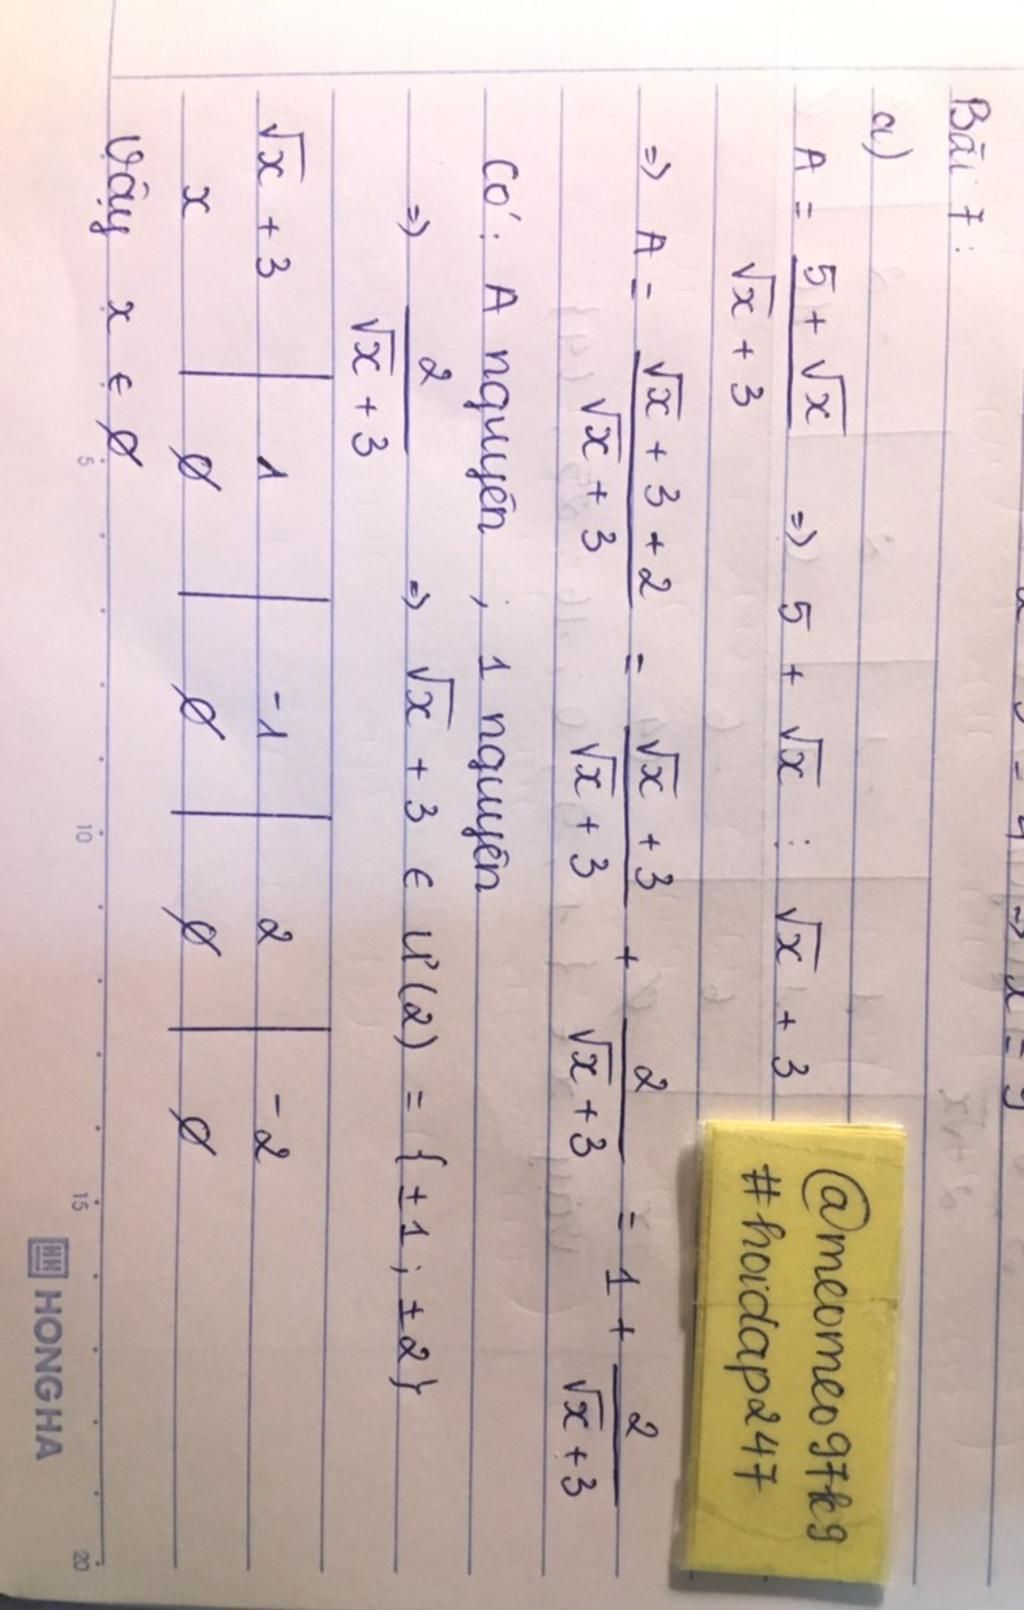 Bài 7:
a)
A = 5 + √x / √x + 3 ⇒ 5 + √x ⋮ √x + 3
@meomeo97k9
#hoidap247
⇒ A = √x + 3 + 2 / √x + 3 = √x + 3 / √x + 3 + 2 / √x + 3 = 1 + 2 / √x + 3
Có: A nguyên ; 1 nguyên
⇒ 2 / √x + 3 ⇒ √x + 3 ∈ Ư(2) = {±1; ±2}
√x + 3 | 1 | -1 | 2 | -2
x | ∅ | ∅ | ∅ | ∅
Vậy x ∈ ∅
5 10 15 20
HH HONG HA